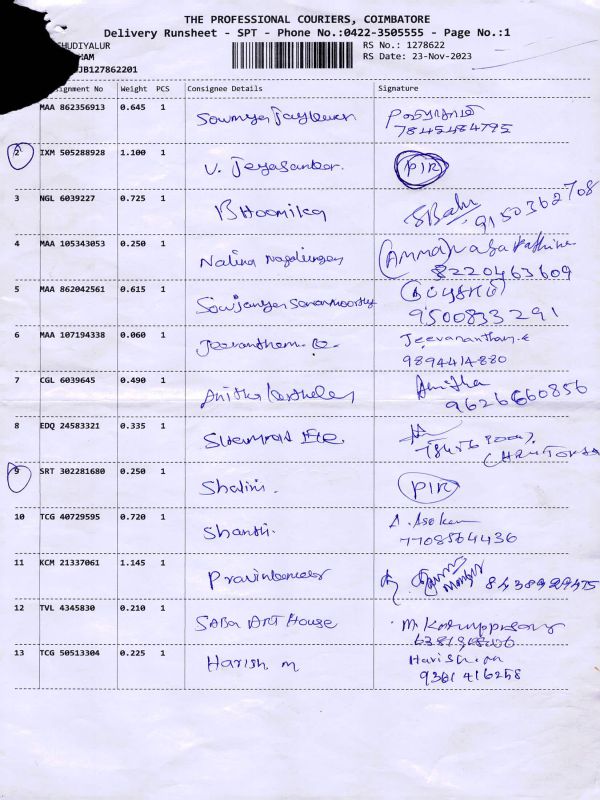 THE PROFESSIONAL COURIERS, COIMBATORE
Delivery Runsheet - SPT - Phone No.:0422-3505555 - Page No.:1
SHUDIYALUR RS No.: 1278622
HAM RS Date: 23-Nov-2023
JB127862201
signment No Weight PCS Consignee Details Signature
MAA 862356913 0.645 1
7845484795
2 IXM 505288928 1.100 1 V. Jeyasankar. PIR
3 NGL 6039227 0.725 1 Bhoomika SBabu 9150362708
4 MAA 105343053 0.250 1 Nalina Nagalingam (Amma)
8220463609
5 MAA 862042561 0.615 1
9500833291
6 MAA 107194338 0.060 1 Jeevananthan.e
9894414880
7 CGL 6039645 0.490 1 Anitha Anitha
9626660856
8 EDQ 24583321 0.335 1
9 SRT 302281680 0.250 1 Shalini. PIR
10 TCG 40729595 0.720 1 Shanthi. A. Asokan
7708564436
11 KCM 21337061 1.145 1 Pravinkumar 8438929475
12 TVL 4345830 0.210 1 SABA ART HOUSE M.
13 TCG 50513304 0.225 1 Harish. m Harish.m
9361416258